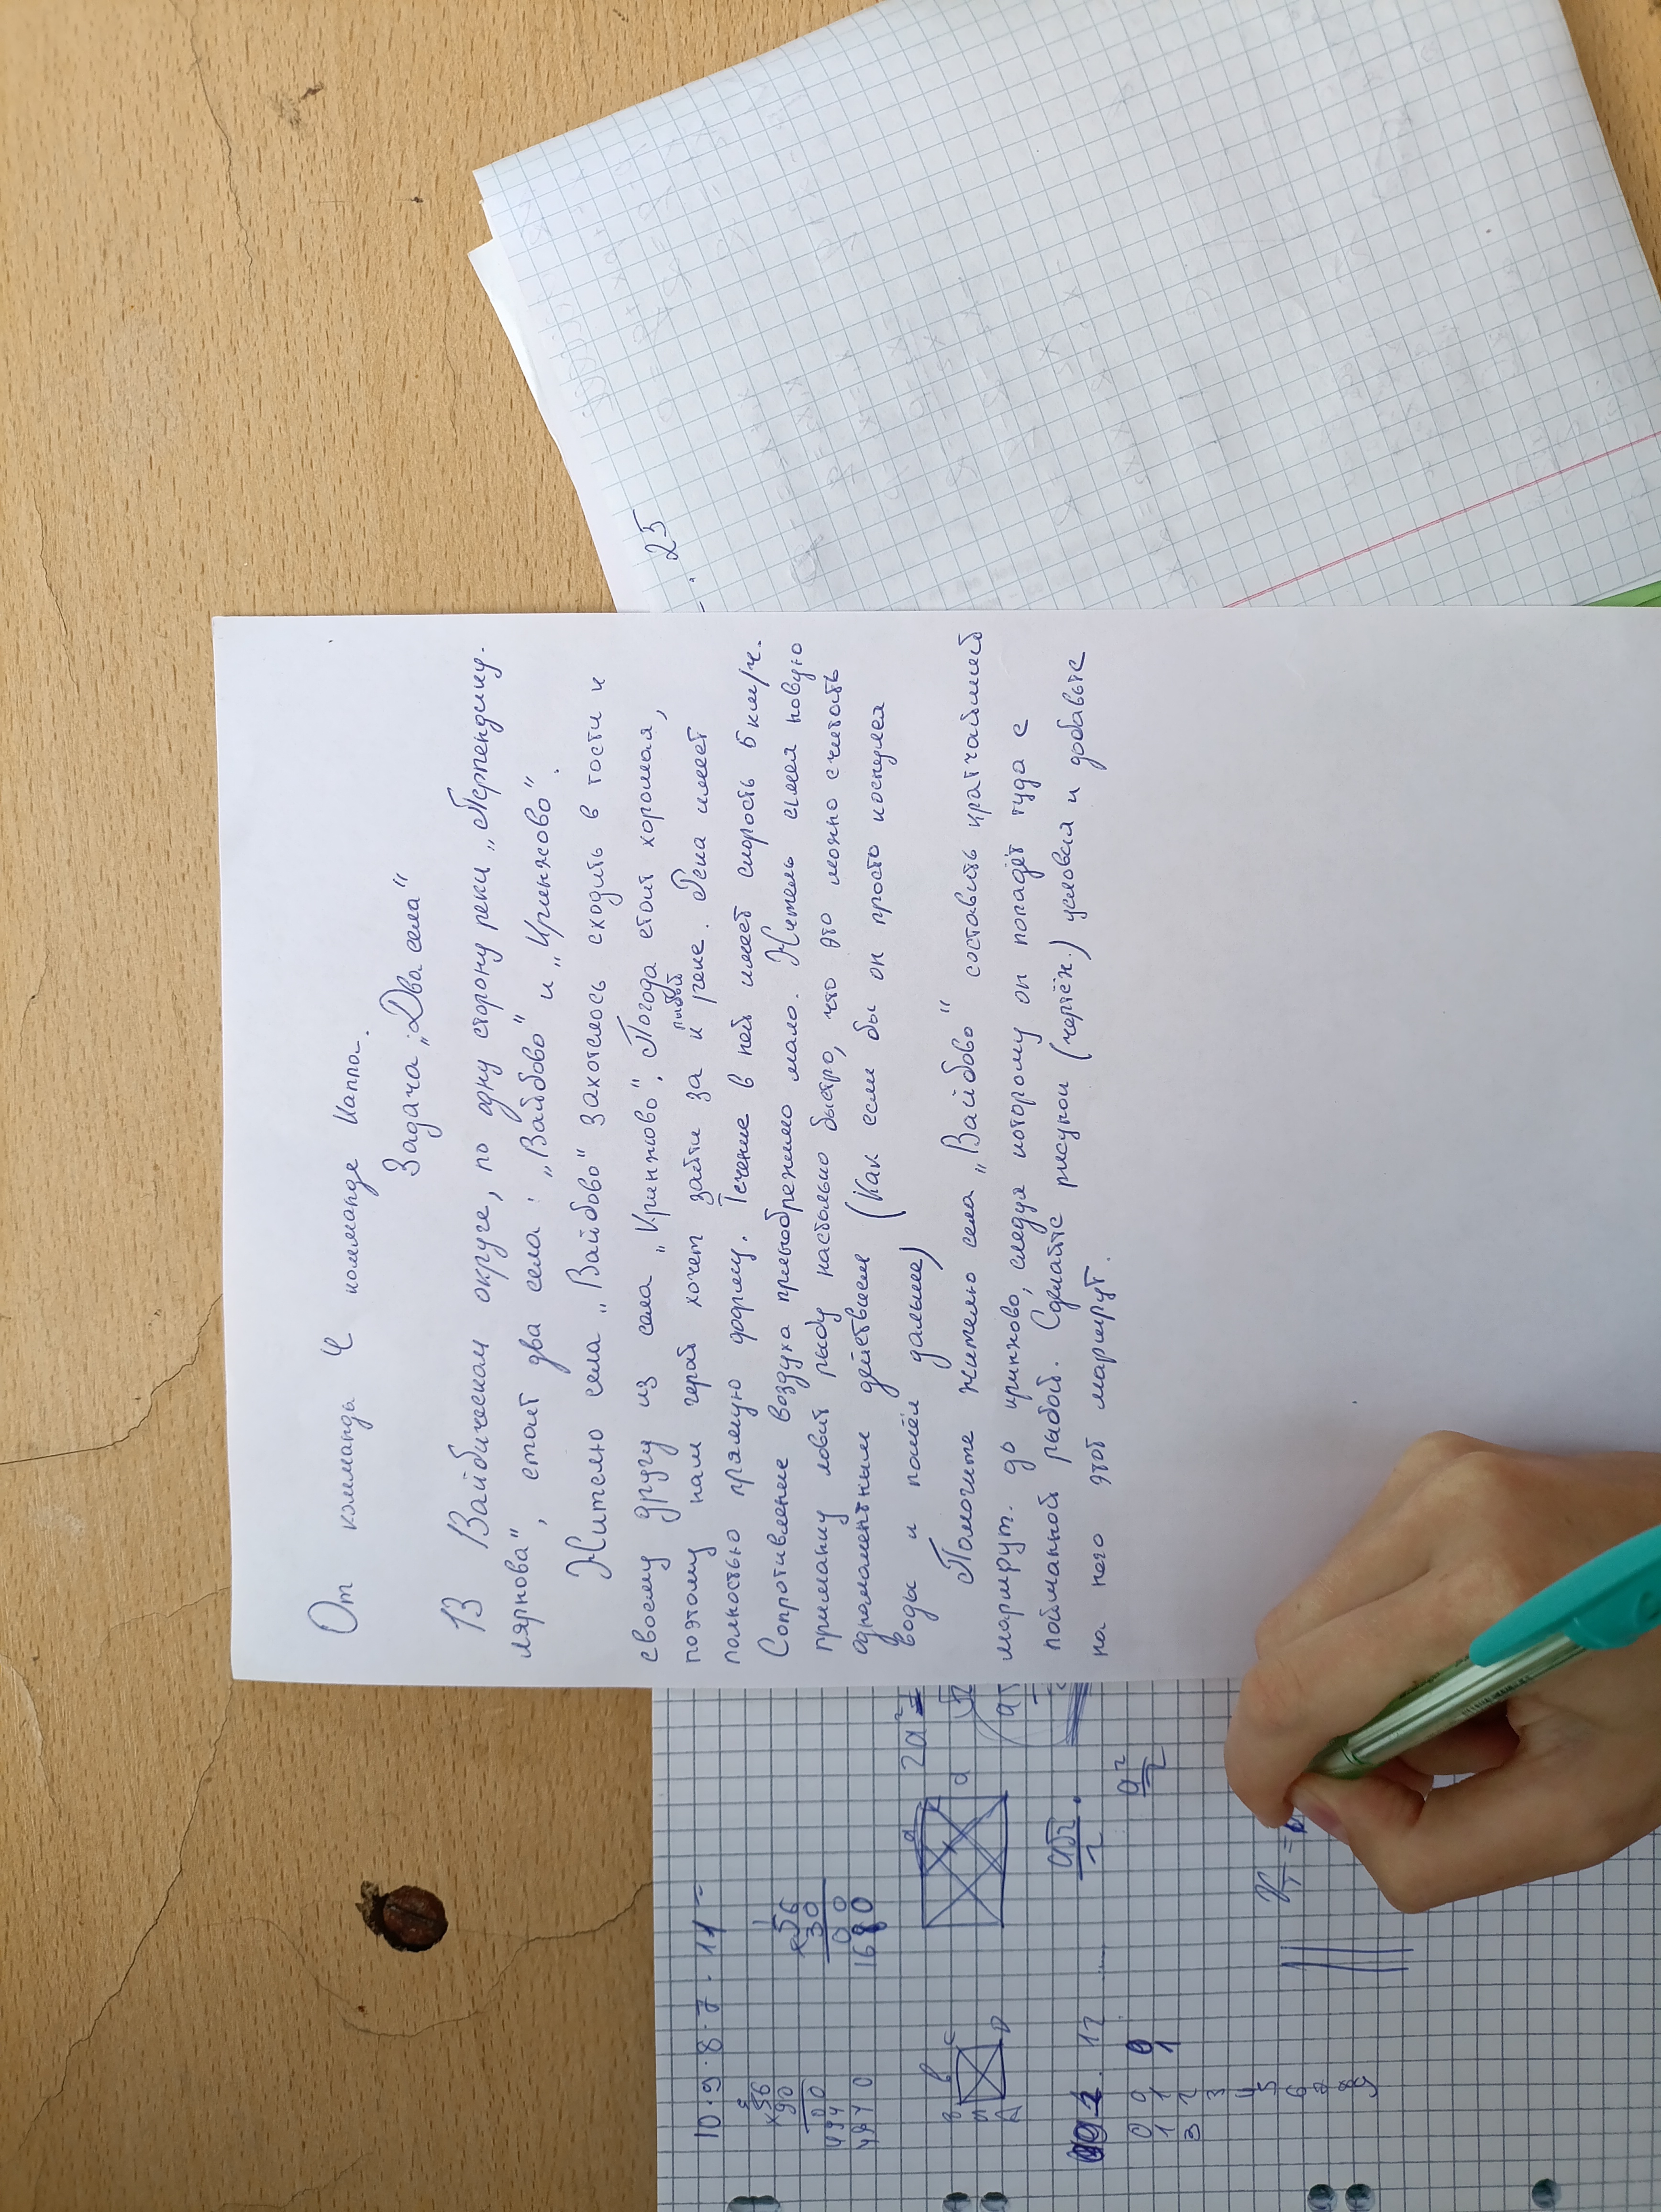 От комманды Ч комманде Каппа.
Задача: „Два села“
В Вайбическом округе, по одну сторону реки „Перпендику-
лярнова“, стоит два села: „Вайбово“ и „Кринжово“.
Жителю села „Вайбово“ захотелось сходить в гости к
своему другу из села „Кринжово“. Погода стоит хорошая,
поэтому нам герой хочет зайти за рыбой к реке. Река имеет
полностью прямую форму. Течение в ней имеет скорость 5 км/ч.
Сопротивление воздуха пренебрежимо мало. Житель имея новую
приманку ловит рыбу настолько быстро, что это можно считать
одномоментным действием (Как если бы он просто коснулся
воды и пошёл дальше)
Помогите жителю села „Вайбово“ составить кратчайший
маршрут. до кринжово, следуя которому он попадёт туда с
пойманной рыбой. Сделайте рисунок (чертёж.) условия и добавьте
на него этот маршрут.
. 25
10 · 9 · 8 · 7 · 11
56
30
00
1680
2a²=
a
a
B C
A D
a√2
2
a²
2
12
0 0
1 1
3 2
3
4
5
6
7
8
9
0
1